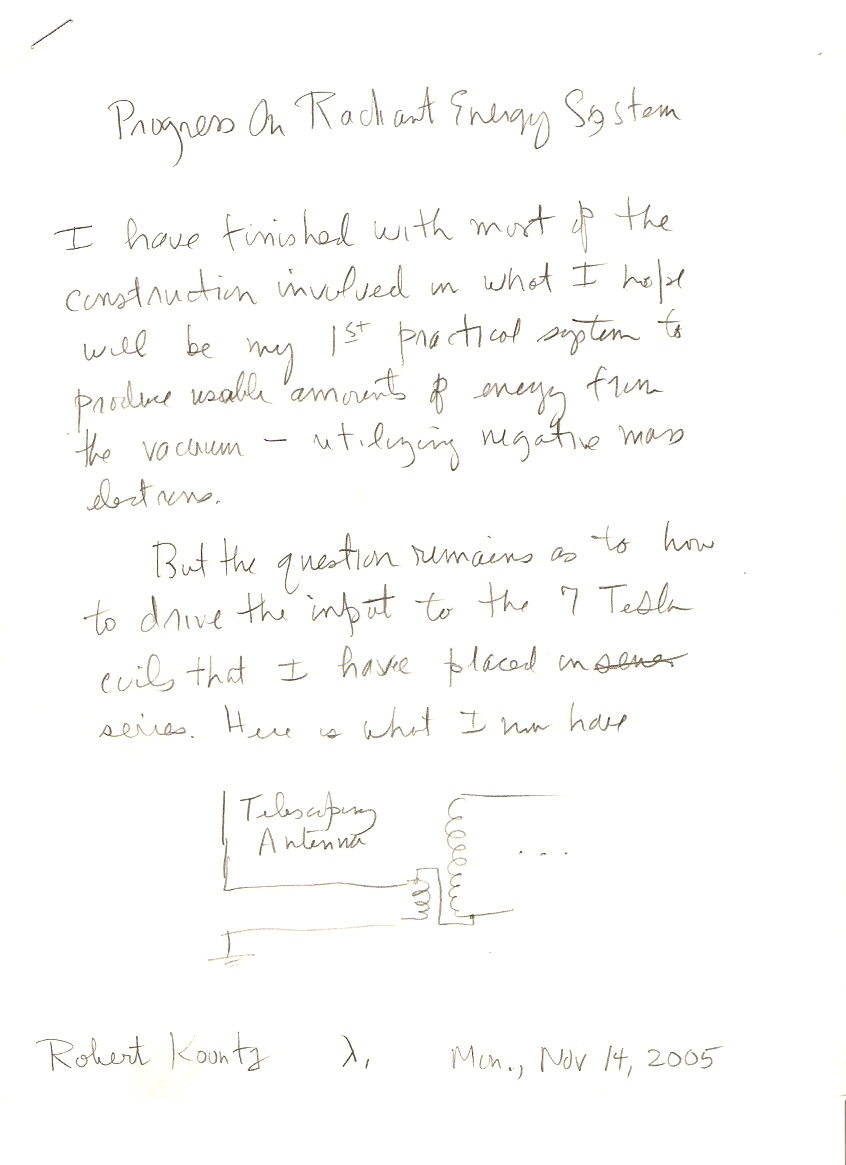 Progress On Radiant Energy System
I have finished with most of the
construction involved in what I hope
will be my 1st practical system to
produce usable amounts of energy from
the vacuum – utilizing negative mass
electrons.
But the question remains as to how
to drive the input to the 7 Tesla
coils that I have placed in
series. Here is what I now have
Telescoping
Antenna
...
Robert Koontz λ, Mon., Nov 14, 2005